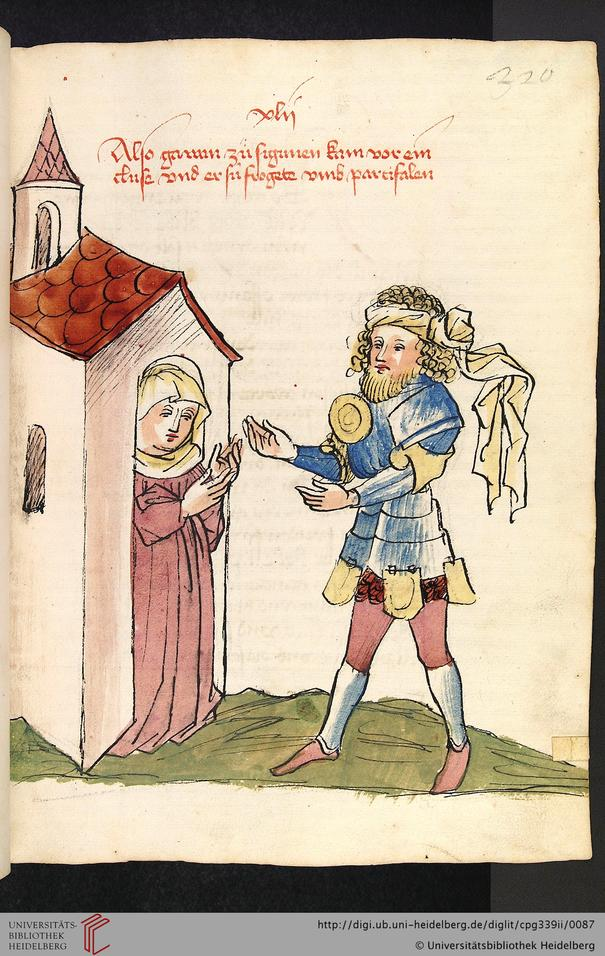 320
xlii
Also gawan zů sigunen kam vor ein
cluse vnd er sú frogete vmb partifalen
UNIVERSITÄTS-
BIBLIOTHEK
HEIDELBERG
http://digi.ub.uni-heidelberg.de/diglit/cpg339ii/0087
© Universitätsbibliothek Heidelberg